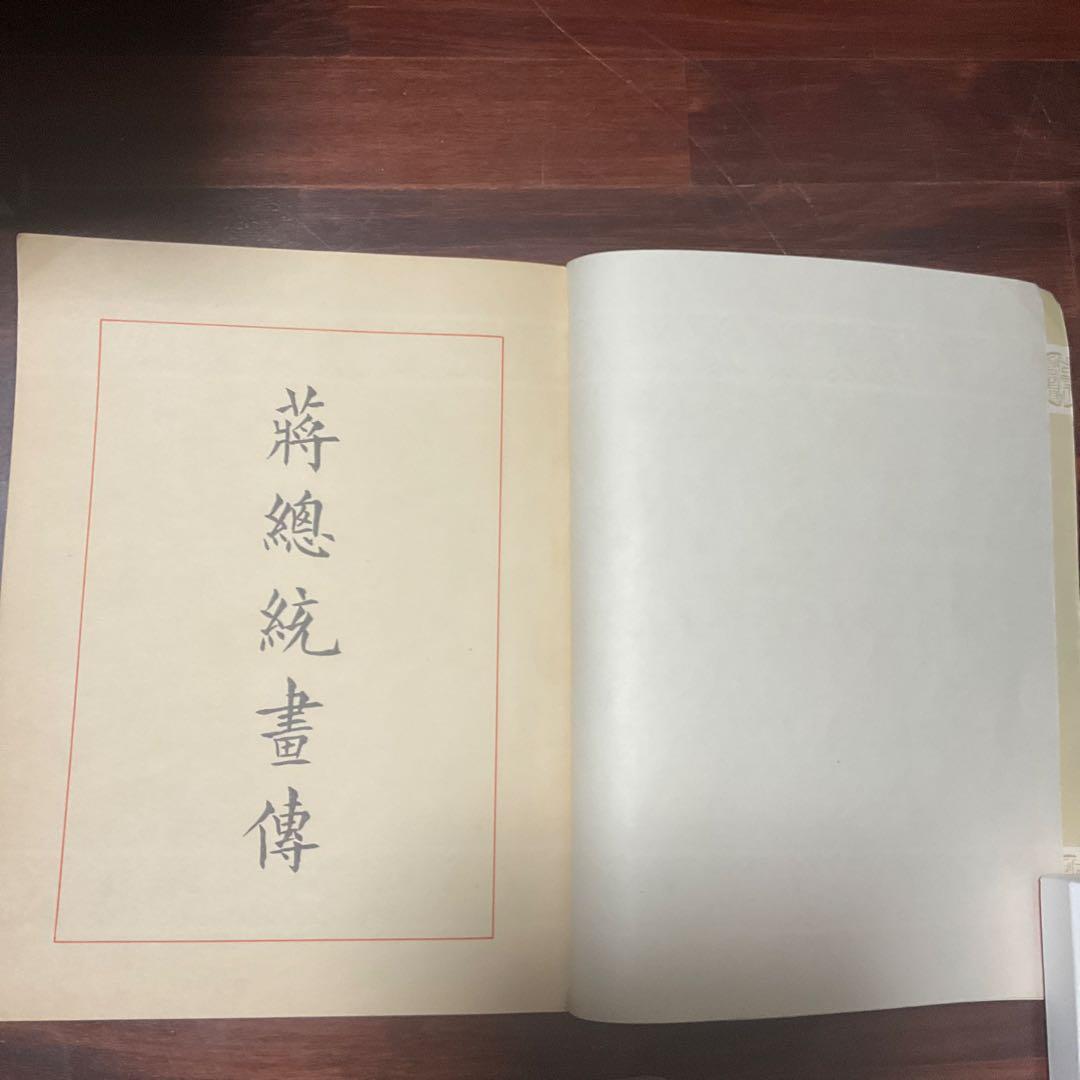 蔣總統畫傳